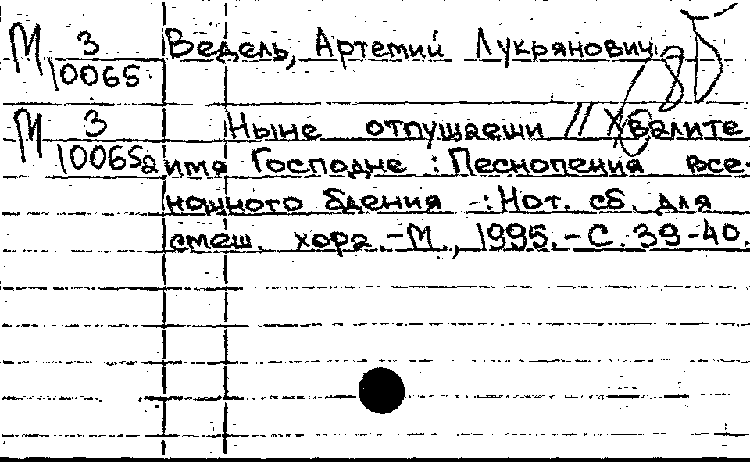 М 3 Ведель, Артемий Лукрянович
10065
М 3 Ныне отпущаеши // Хвалите
10065а имя Господне : Песнопения все-
нощного бдения -: Нот. сб. для
смеш. хора. - М., 1995. - С. 39-40.